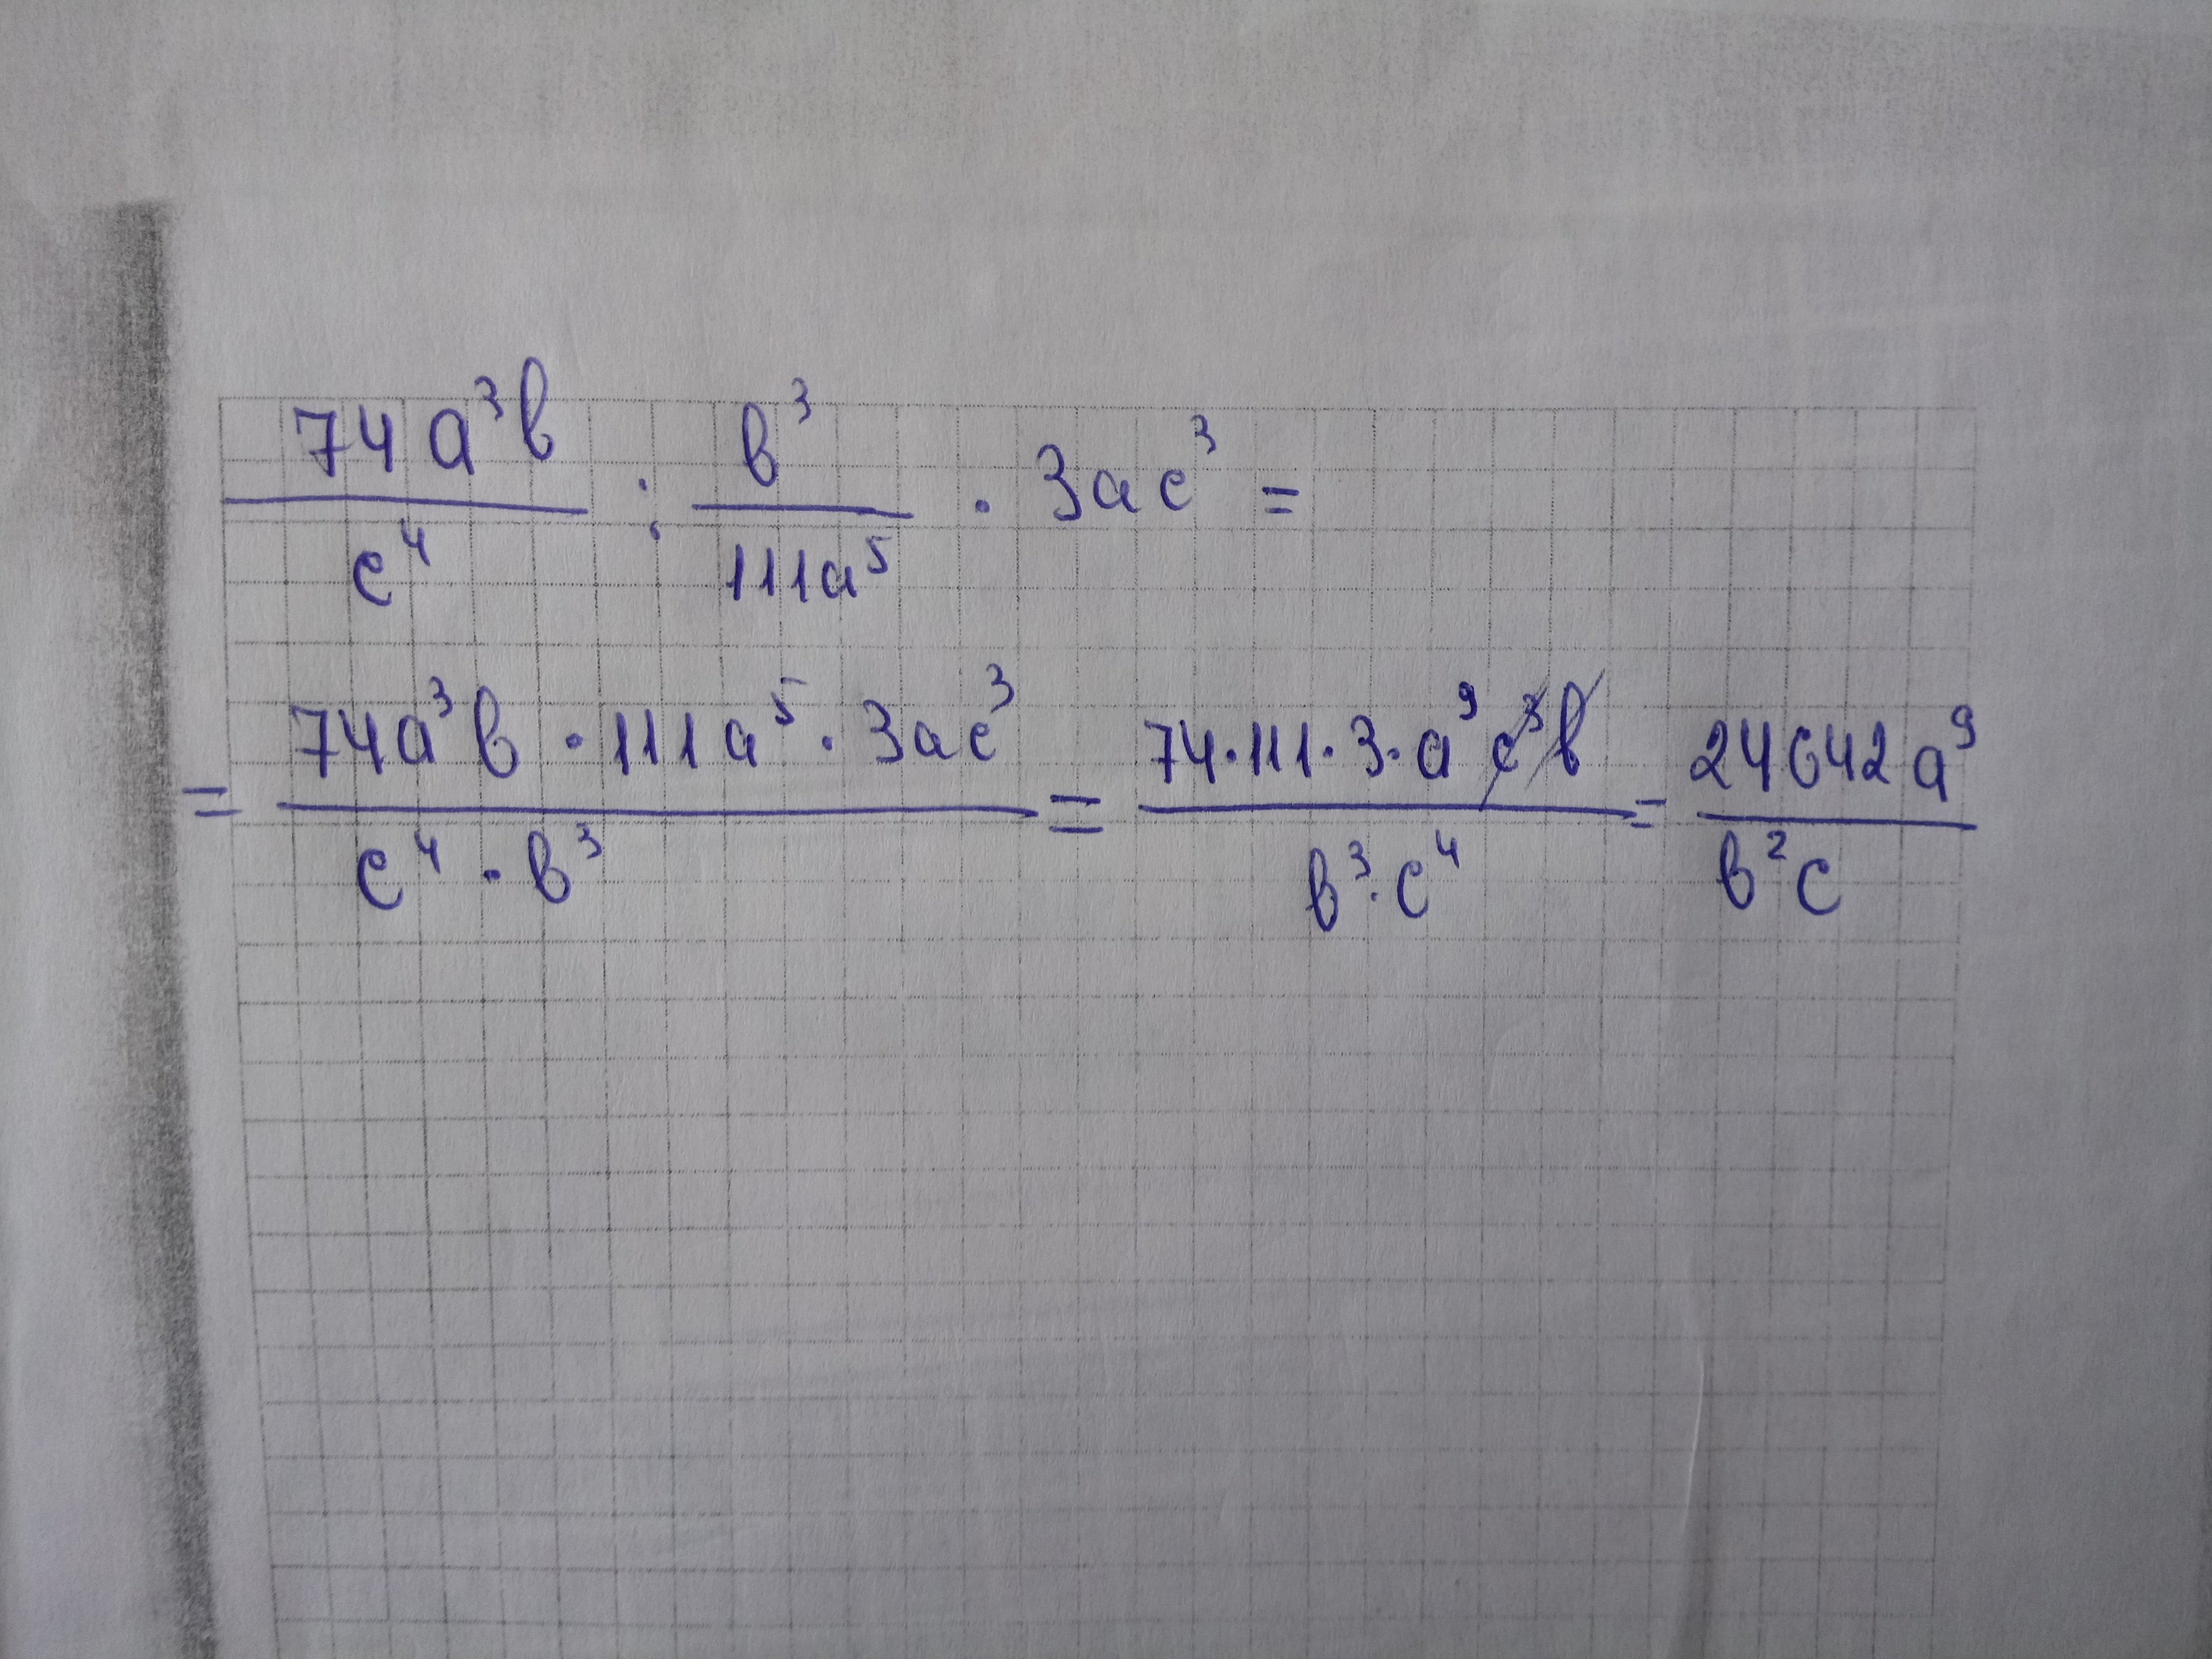 74a³b/c⁴ : b³/111a⁵ · 3ac³ =
= 74a³b · 111a⁵ · 3ac³/c⁴ · b³ = 74·111·3·a⁹c³b/b³·c⁴ = 24642a⁹/b²c